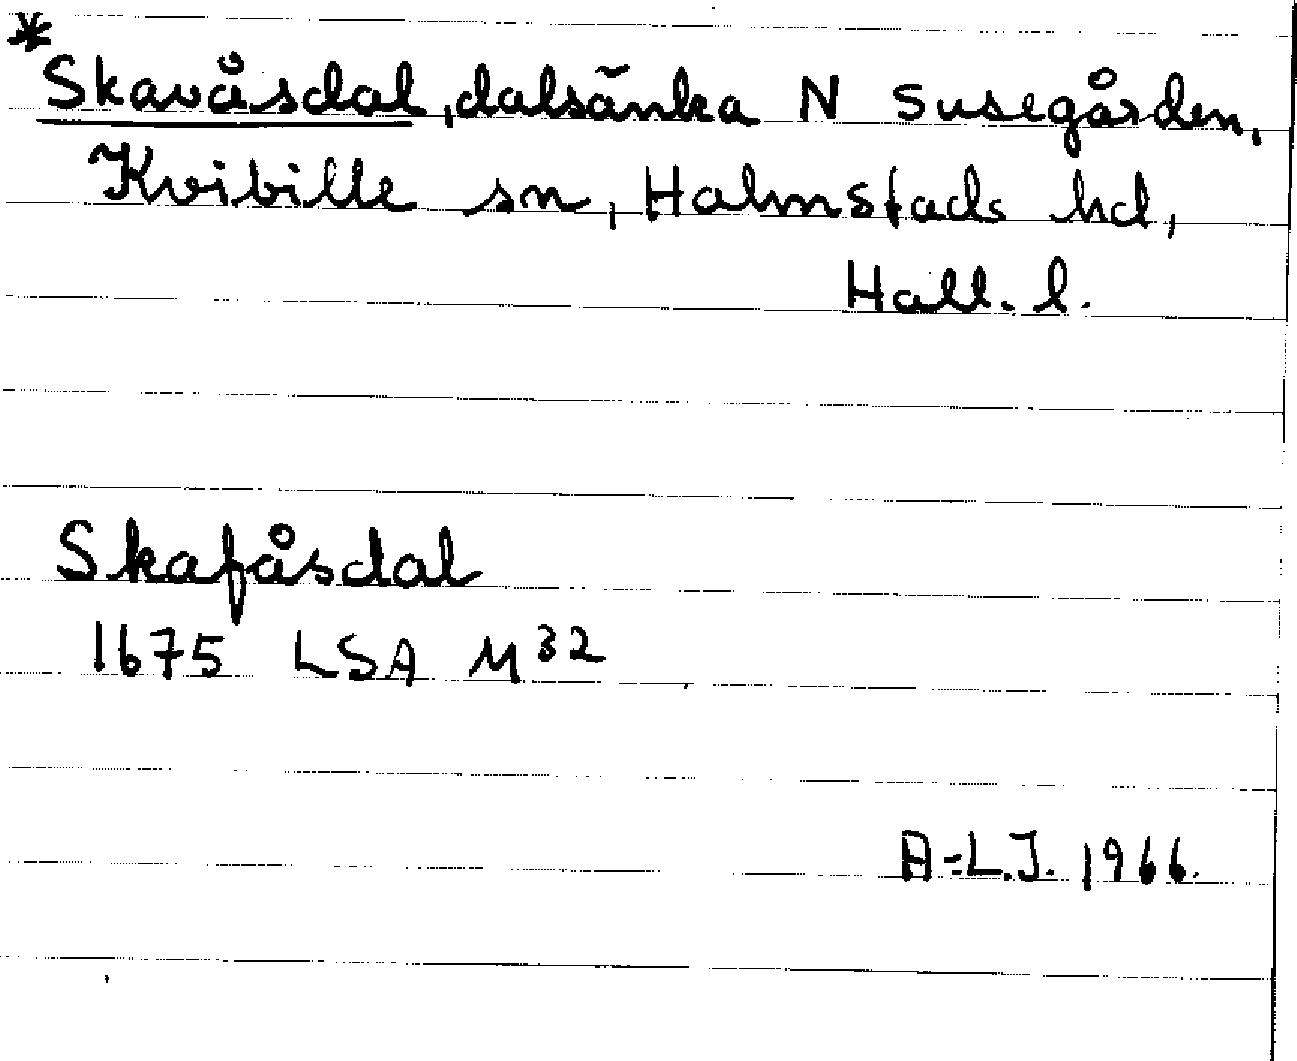 *
Skavåsdal, dalsänka N Susegården,
Kvibille sn, Halmstads hd,
Hall. l.
Skafåsdal
1675 LSA M32
A-L.J. 1966.